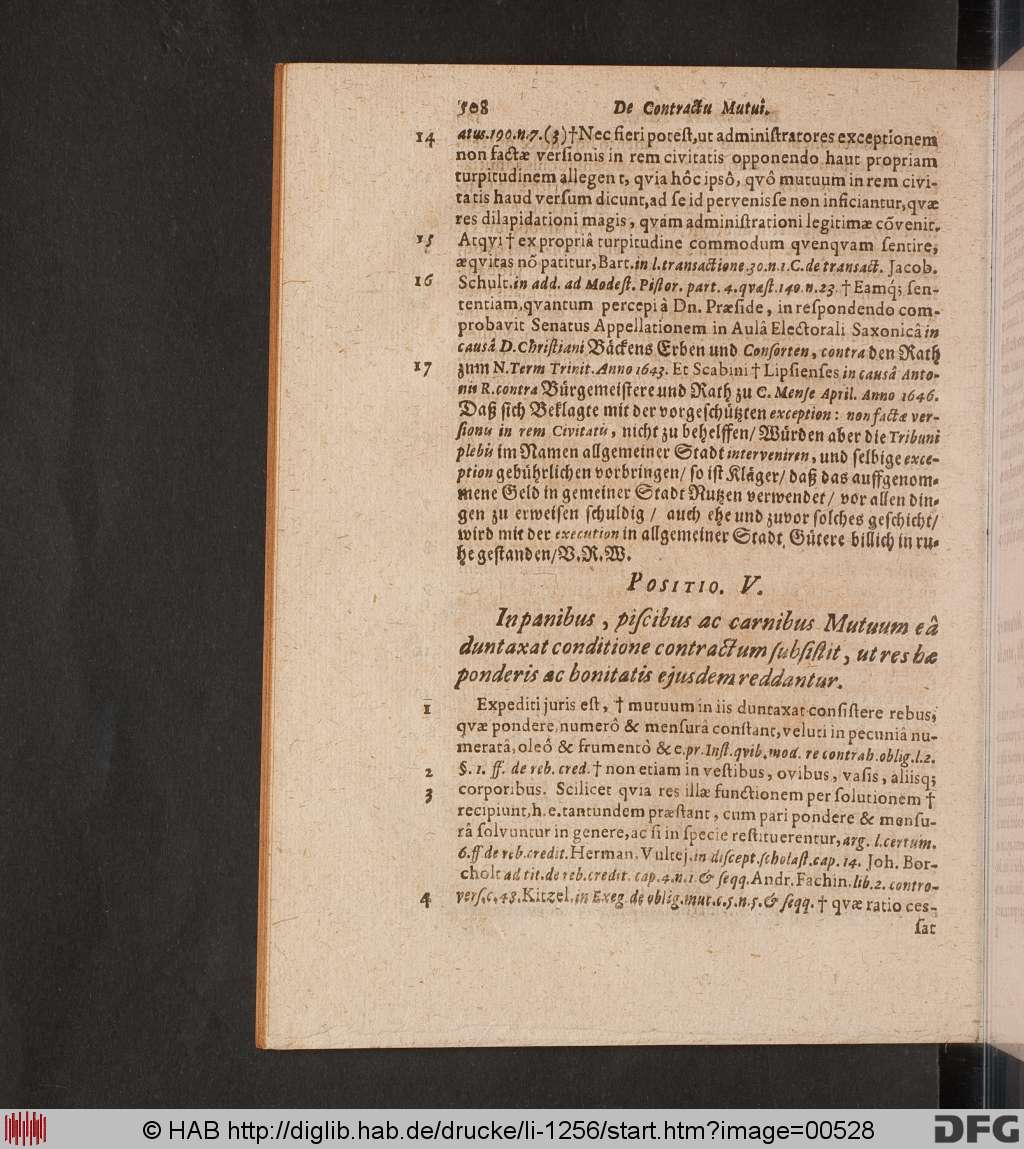 508 De Contractu Mutui.
14 atus.190.n.7.(3)†Nec fieri potest,ut administratores exceptionem
non factæ versionis in rem civitatis opponendo haut propriam
turpitudinem allegent, qvia hôc ipsô, qvô mutuum in rem civi-
tatis haud versum dicunt,ad se id pervenisse non inficiantur,qvæ
res dilapidationi magis, qvàm administrationi legitimæ cõvenit.
15 Atqvi † ex propriâ turpitudine commodum qvenqvam sentire,
æqvitas nõ patitur, Bart.in l.transactione.30.n.1.C.de transact. Jacob.
16 Schult.in add. ad Modest. Pistor. part. 4.qvæst.140.n.23. † Eamq́; sen-
tentiam,qvantum percepi à Dn. Præside, in respondendo com-
probavit Senatus Appellationem in Aulâ Electorali Saxonicâ in
causâ D.Christiani Bäckens Erben und Consorten, contra den Rath
17 zum N.Term Trinit. Anno 1643. Et Scabini † Lipsienses in causâ Anto-
nii R.contra Bürgemeistere und Rath zu C. Mense April. Anno 1646.
Daß sich Beklagte mit der vorgeschützten exception: non factæ ver-
sionis in rem Civitatis, nicht zu behelffen/ Würden aber die Tribuni
plebis im Namen allgemeiner Stadt interveniren, und selbige exce-
ption gebührlichen vorbringen/ so ist Kläger/ daß das auffgenom-
mene Geld in gemeiner Stadt Nutzen verwendet/ vor allen din-
gen zu erweisen schuldig / auch ehe und zuvor solches geschicht/
wird mit der execution in allgemeiner Stadt Gütere billich in ru-
he gestanden/V.R.W.
POSITIO. V.
In panibus, piscibus ac carnibus Mutuum eâ
duntaxat conditione contractum subsistit, ut res hæ
ponderis ac bonitatis ejusdem reddantur.
1 Expediti juris est, † mutuum in iis duntaxat consistere rebus,
qvæ pondere,numerô & mensurâ constant,veluti in pecuniâ nu-
meratâ, oleô & frumentô &c.pr.Inst.qvib.mod. re contrah.oblig.l.2.
2 §. 1. ff. de reb. cred.† non etiam in vestibus, ovibus, vasis, aliisq;
3 corporibus. Scilicet qvia res illæ functionem per solutionem †
recipiunt,h.e.tantundem præstant, cum pari pondere & mensu-
râ solvuntur in genere,ac si in specie restituerentur, arg. l.certum.
6.ff de reb.credit.Herman.Vultej.in discept.scholast.cap.14. Joh. Bor-
cholt ad tit.de reb.credit. cap.4.n.1.& seqq.Andr.Fachin.lib.2. contro-
4 vers.c.48.Kitzel.in Exeg.de oblig.mut.c.5.n.5.& seqq. † qvæ ratio ces-
sat
© HAB http://diglib.hab.de/drucke/li-1256/start.htm?image=00528
DFG